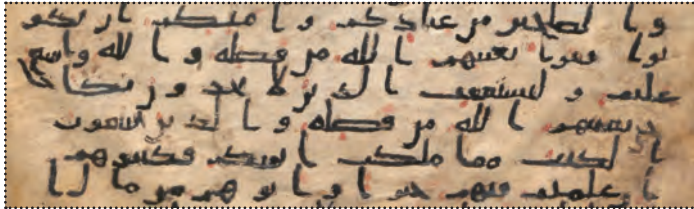 والصلحين من عبادكم وامئكم ان يكو
نوا فقرا يغنهم الله من فضله والله واسع
عليم وليستعفف الذين لا يجدون نكاحا
يغنيهم الله من فضله والذين يبتغون
الكتب مما ملكت ايمنكم فكتبوهم
ان علمتم فيهم خيرا واتوهم من ما ل ا